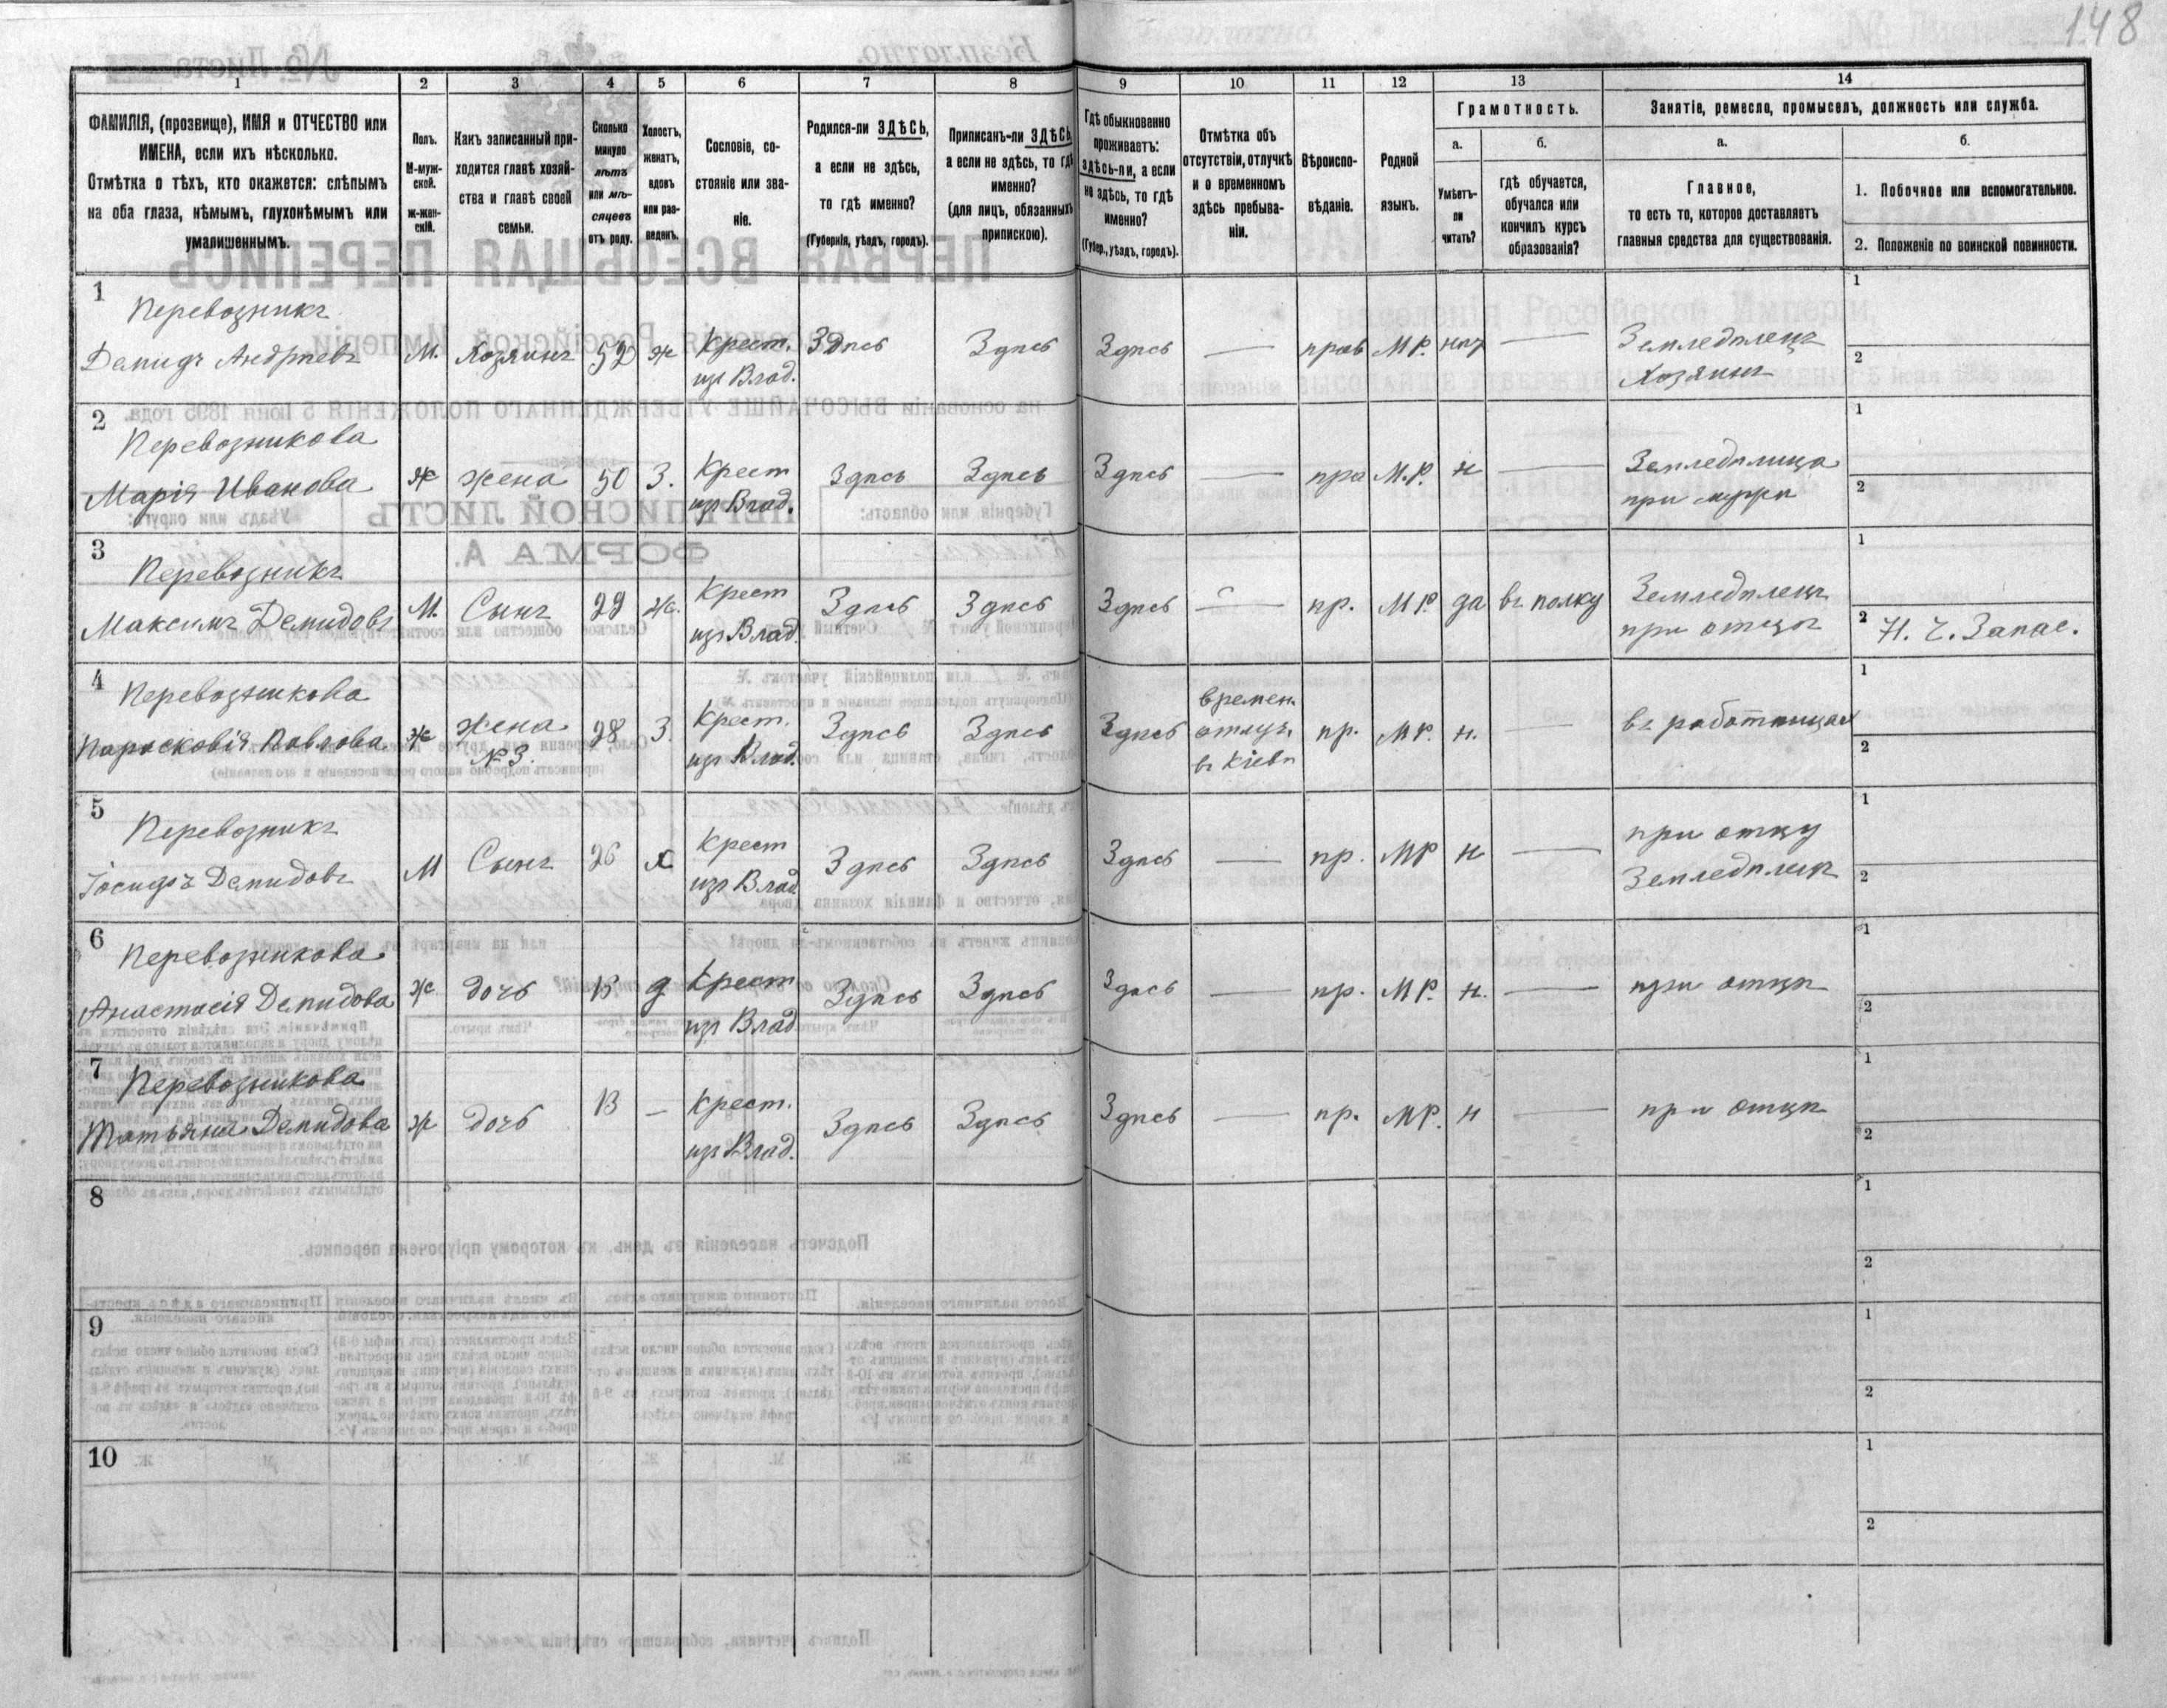 148
1 2 3 4 5 6 7 8 9 10 11 12 13 14
ФАМИЛІЯ, (прозвище), ИМЯ и ОТЧЕСТВО или
ИМЕНА, если ихъ нѣсколько.
Отмѣтка о тѣхъ, кто окажется: слѣпымъ
на оба глаза, нѣмымъ, глухонѣмымъ или
умалишеннымъ.
Полъ.
М-муж-
ской.
ж-жен-
скій.
Какъ записанный при-
ходится главѣ хозяй-
ства и главѣ своей
семьи.
Сколько
минуло
лѣтъ
или мѣ-
сяцевъ
отъ роду.
Холостъ,
женатъ,
вдовъ
или раз-
веденъ.
Сословіе, со-
стояніе или зва-
ніе.
Родился-ли ЗДѢСЬ,
а если не здѣсь,
то гдѣ именно?
(Губернія, уѣздъ, городъ).
Приписанъ-ли ЗДѢСЬ,
а если не здѣсь, то гдѣ
именно?
(для лицъ, обязанныхъ
припискою).
Гдѣ обыкновенно
проживаетъ:
здѣсь-ли, а если
не здѣсь, то гдѣ
именно?
(Губер., уѣздъ, городъ).
Отмѣтка объ
отсутствіи, отлучкѣ
и о временномъ
здѣсь пребыва-
ніи.
Вѣроиспо-
вѣданіе.
Родной
языкъ.
Грамотность.
а.
Умѣетъ-
ли
читать?
б.
гдѣ обучается,
обучался или
кончилъ курсъ
образованія?
Занятіе, ремесло, промыселъ, должность или служба.
а.
Главное,
то есть то, которое доставляетъ
главныя средства для существованія.
б.
1. Побочное или вспомогательное.
2. Положеніе по воинской повинности.
1
Перевозникъ
Демидъ Андрѣевъ М. Хозяинъ 52 ж Крест. Здѣсь Здѣсь Здѣсь — прав М Р. нѣт — Земледѣлецъ 1
изъ Влад. Хозяинъ 2
2
Перевозникова
Марія Иванова ж жена 50 З. Крест Здѣсь Здѣсь Здѣсь — пра М.Р. н — Земледѣлица 1
изъ Влад. при мужѣ 2
3
Перевозникъ
Максимъ Демидовъ М. Сынъ 29 ж. Крест Здѣсь Здѣсь Здѣсь — пр. М Р да въ полку Земледѣлецъ 1
изъ Влад. при отцѣ 2 Н. Ч. Запас.
4
Перевозникова
Парасковія Павлова ж жена 28 З. Крест. Здѣсь Здѣсь Здѣсь времен. пр. М Р. н. — въ работницах 1
№ 3. изъ Влад. отлуч. 2
въ Кіевѣ
5
Перевозникъ
Іосифъ Демидовъ М Сынъ 26 х Крест Здѣсь Здѣсь Здѣсь — пр. МР н — при отцу 1
изъ Влад Земледѣлец 2
6
Перевозникова
Анастасія Демидова ж дочь 18 д Крест Здѣсь Здѣсь Здѣсь — пр. МР. н. — при отцѣ 1
изъ Влад 2
7
Перевозникова
Татьяна Демидова ж дочь 13 — Крест. Здѣсь Здѣсь Здѣсь — пр. МР. н — при отцѣ 1
изъ Влад. 2
8 1
2
9 1
2
10 1
2